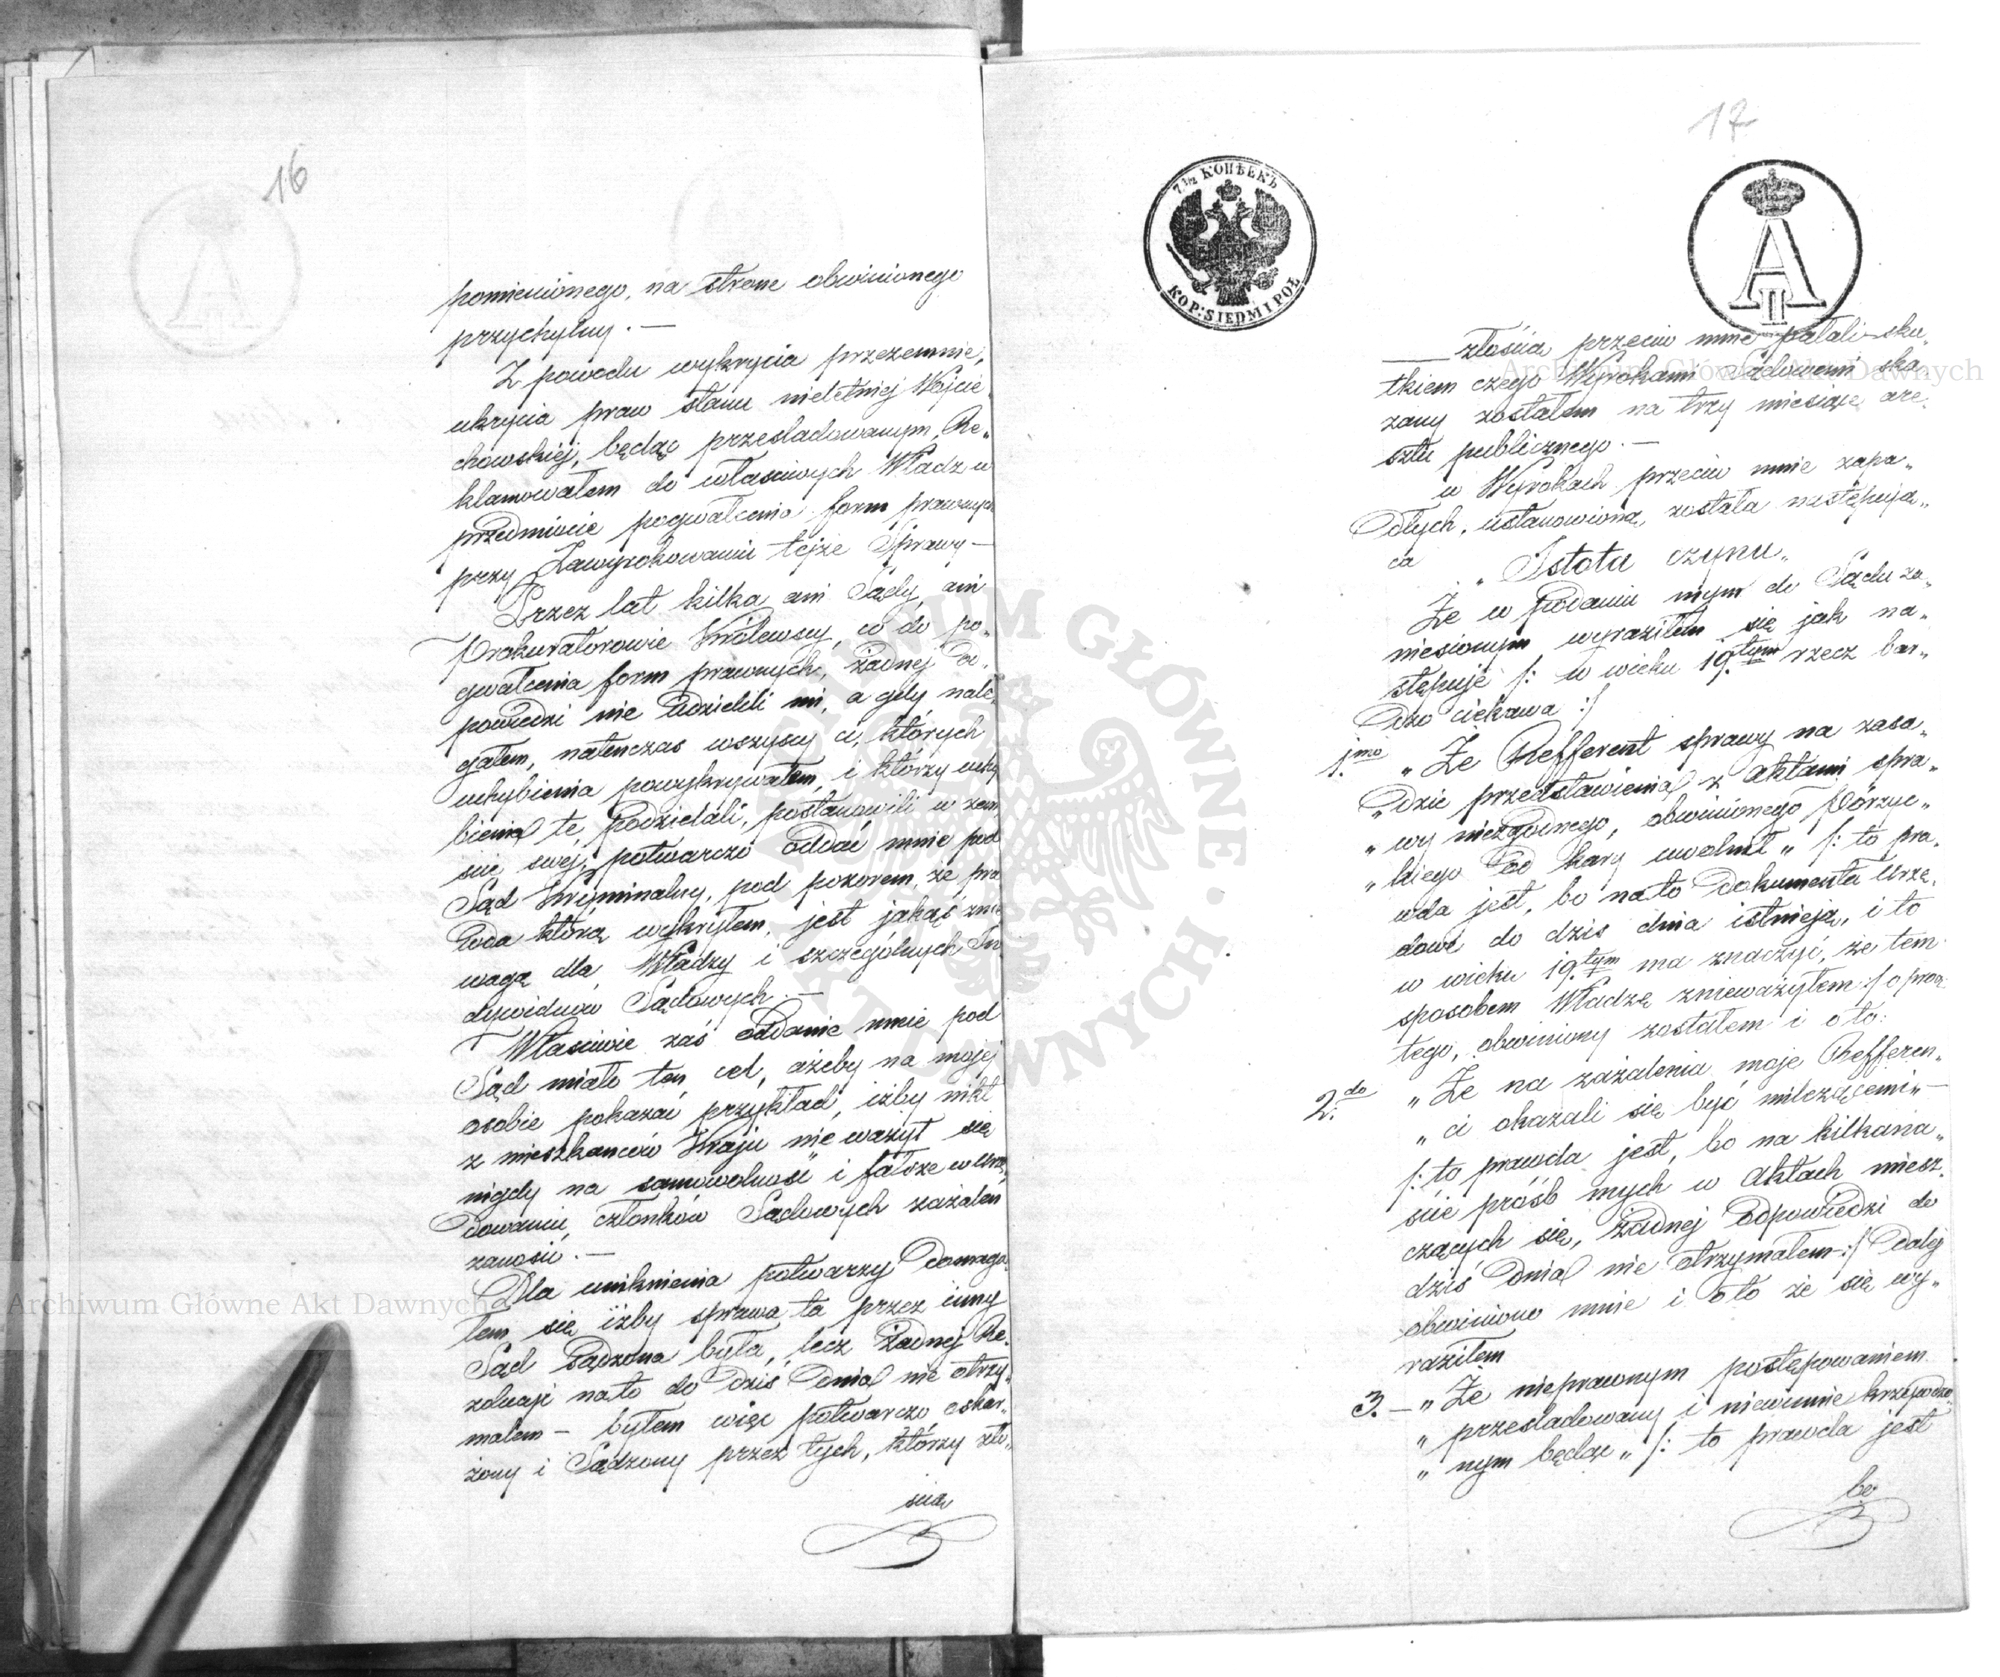 16
pomienionego, na strone obwinionego
przychylny. —
Z powodu wykrycia przezemnie,
ukrycia praw stanu nieletniej Wojcie
chowskiej, będąc prześladowanym, Re„
klamowałem do właściwych Władz w
przedmiocie pogwałcenia form prawnych
przy Zawyrokowaniu tejże Sprawy —
Przez lat kilka ani Sądy, ani
Prokuratorowie Królewscy, co do po„
gwałcenia form prawnych, żadnej od„
powiedzi nie udzielili mi, a gdy nale„
gałem, natenczas wszyscy ci, których
uchybienia powykrywałem, i którzy uchy
bienia te podzielali, postanowili w zem
ście swéj, potwarczo oddać mnie pod
Sąd Kryminalny, pod pozorem, że pra
wda którą wykryłem, jest jakąś znie
wagą dla Władzy i szczególnych In
dywiduów Sądowych. —
Właściwie zaś oddanie mnie pod
Sąd miało ten cel, ażeby na mojéj
osobie pokazać przykład, iżby nikt
z mieszkanców Kraju nie ważył się
nigdy na samowolność i fałsze w Urzę„
dowaniu członków Sądowych zażaleń
zanosić. —
Dla uniknienia potwarzy domaga„
łem się iżby sprawa ta przez inny
Sąd sądzona była, lecz żadnej Re„
zolucji na to do dziś dnia nie otrzy„
małem — byłem więc potwarczo oskar„
żony i Sądzony przez tych, którzy zło„
ścią
17
7 1/2 КОПѢЕКЪ
KOP: SIEDM I PÓŁ
A II
— złością przeciw mnie pałali sku„
tkiem czego Wyrokami Sądowemi ska„
zany zostałem na trzy miesiące are„
sztu publicznego. —
w Wyrokach przeciw mnie zapa„
dłych, ustanowiona, została następują„
ca „Istota czynu„
Że w podaniu mym do Sądu za„
niesionym wyraziłem się jak na„
stępuje /: w wieku 19.tym rzecz bar„
dzo ciekawa :/
1.mo „Że Refferent sprawy na zasa„
„dzie przedstawienia z aktami spra„
„wy niezgodnego, obwinionego Pórzyc„
„kiego od kary uwolnił„ /: to pra„
wda jest, bo na to dokumenta Urzę„
dowe do dziś dnia istnieją, i to
w wieku 19.tym ma znaczyć, że tem
sposobem Władzę znieważyłem :/ oprócz
tego, obwiniony zostałem i o to:
2.do „Że na zażalenia moje Refferen„
„ci okazali się być milczącemi„ —
/: to prawda jest, bo na kilkana„
ście próśb mych w Aktach miesz„
czących się, żadnej odpowiedzi do
dziś dnia nie otrzymałem :/ Dalej
obwiniono mnie i o to że się wy„
raziłem
3. — „Że nieprawnym postępowaniem
„prześladowany i niewinnie krzywdzo„
„nym będąc„ /: to prawda jest
bo
Archiwum Główne Akt Dawnych
Archiwum Główne Akt Dawnych
ARCHIWUM GŁÓWNE · AKT DAWNYCH ·